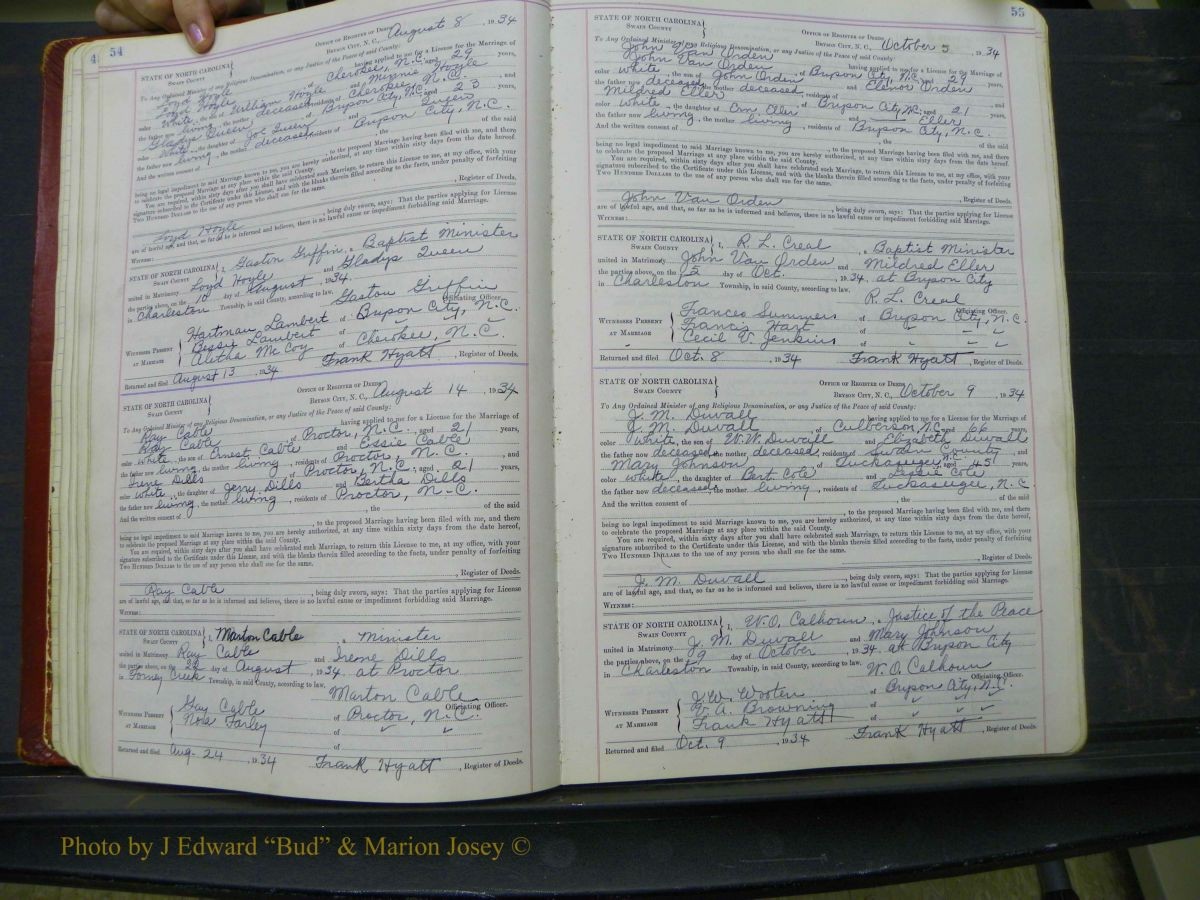 54
OFFICE OF REGISTER OF DEEDS
BRYSON CITY, N. C., August 8, 1934
STATE OF NORTH CAROLINA
SWAIN COUNTY
To Any Ordained Minister of any Religious Denomination, or any Justice of the Peace of said County:
Loyd Hoyle having applied to me for a License for the Marriage of
Loyd Hoyle of Cherokee, N.C., aged 29 years,
color white, the son of William Hoyle and Minnie Hoyle
the father now living, the mother deceased, residents of Cherokee N.C. and
Gladys Queen of Bryson City, N.C. aged 23 years,
color white, the daughter of Joe Queen and Queen
the father now living, the mother deceased, residents of Bryson City, N.C.
And the written consent of , the of the said
, to the proposed Marriage having been filed with me, and there
being no legal impediment to said Marriage known to me, you are hereby authorized, at any time within sixty days from the date hereof,
to celebrate the proposed Marriage at any place within the said County.
You are required, within sixty days after you shall have celebrated such Marriage, to return this License to me, at my office, with your
signature subscribed to the Certificate under this License, and with the blanks therein filled according to the facts, under penalty of forfeiting
TWO HUNDRED DOLLARS to the use of any person who shall sue for the same.
, Register of Deeds.
Loyd Hoyle, being duly sworn, says: That the parties applying for License
are of lawful age, and that, so far as he is informed and believes, there is no lawful cause or impediment forbidding said Marriage.
WITNESS:
STATE OF NORTH CAROLINA
SWAIN COUNTY
I, Gaston Griffin, a Baptist Minister
united in Matrimony Loyd Hoyle and Gladys Queen
the parties above, on the 10 day of August, 1934
in Charleston Township, in said County, according to law.
Gaston Griffin
Officiating Officer.
WITNESSES PRESENT AT MARRIAGE
Hartman Lambert of Bryson City, N.C.
Bessie Lambert of " "
Aletha McCoy of Cherokee, N.C.
Returned and filed August 13, 1934 Frank Hyatt, Register of Deeds.
OFFICE OF REGISTER OF DEEDS
BRYSON CITY, N. C., August 14, 1934
STATE OF NORTH CAROLINA
SWAIN COUNTY
To Any Ordained Minister of any Religious Denomination, or any Justice of the Peace of said County:
Ray Cable having applied to me for a License for the Marriage of
Ray Cable of Proctor, N.C., aged 21 years,
color white, the son of Ernest Cable and Essie Cable
the father now living, the mother living, residents of Proctor, N.C. and
Irene Dills of Proctor, N.C., aged 21 years,
color white, the daughter of Jerry Dills and Bertha Dills
the father now living, the mother living, residents of Proctor, N.C.
And the written consent of , the of the said
, to the proposed Marriage having been filed with me, and there
being no legal impediment to said Marriage known to me, you are hereby authorized, at any time within sixty days from the date hereof,
to celebrate the proposed Marriage at any place within the said County.
You are required, within sixty days after you shall have celebrated such Marriage, to return this License to me, at my office, with your
signature subscribed to the Certificate under this License, and with the blanks therein filled according to the facts, under penalty of forfeiting
TWO HUNDRED DOLLARS to the use of any person who shall sue for the same.
, Register of Deeds.
Ray Cable, being duly sworn, says: That the parties applying for License
are of lawful age, and that, so far as he is informed and believes, there is no lawful cause or impediment forbidding said Marriage.
WITNESS:
STATE OF NORTH CAROLINA
SWAIN COUNTY
I, Marton Cable, a Minister
united in Matrimony Ray Cable and Irene Dills
the parties above, on the 22 day of August, 1934 at Proctor
in Forney Creek Township, in said County, according to law.
Marton Cable
Officiating Officer.
WITNESSES PRESENT AT MARRIAGE
Gay Cable of Proctor, N.C.
Nola Farley of " "
of
Returned and filed Aug. 24, 1934 Frank Hyatt, Register of Deeds.
55
STATE OF NORTH CAROLINA
SWAIN COUNTY
OFFICE OF REGISTER OF DEEDS
BRYSON CITY, N. C., October 5, 1934
To Any Ordained Minister of any Religious Denomination, or any Justice of the Peace of said County:
John Van Orden having applied to me for a License for the Marriage of
John Van Orden of Bryson City, N.C. aged 29 years,
color white, the son of John Orden and Elenor Orden
the father now deceased, the mother deceased, residents of and
Mildred Eller of Bryson City, N.C. aged 21 years,
color white, the daughter of Eller and Eller
the father now living, the mother living, residents of Bryson City, N.C.
And the written consent of , the of the said
, to the proposed Marriage having been filed with me, and there
being no legal impediment to said Marriage known to me, you are hereby authorized, at any time within sixty days from the date hereof,
to celebrate the proposed Marriage at any place within the said County.
You are required, within sixty days after you shall have celebrated such Marriage, to return this License to me, at my office, with your
signature subscribed to the Certificate under this License, and with the blanks therein filled according to the facts, under penalty of forfeiting
TWO HUNDRED DOLLARS to the use of any person who shall sue for the same.
, Register of Deeds.
John Van Orden, being duly sworn, says: That the parties applying for License
are of lawful age, and that, so far as he is informed and believes, there is no lawful cause or impediment forbidding said Marriage.
WITNESS:
STATE OF NORTH CAROLINA
SWAIN COUNTY
I, R. L. Creal, a Baptist Minister
united in Matrimony John Van Orden and Mildred Eller
the parties above, on the 5 day of Oct., 1934, at Bryson City
in Charleston Township, in said County, according to law.
R. L. Creal
Officiating Officer.
WITNESSES PRESENT AT MARRIAGE
Frances Summers of Bryson City, N.C.
Francis Hart of " " "
Cecil V. Jenkins of " " "
Returned and filed Oct. 8, 1934 Frank Hyatt, Register of Deeds.
STATE OF NORTH CAROLINA
SWAIN COUNTY
OFFICE OF REGISTER OF DEEDS
BRYSON CITY, N. C., October 9, 1934
To Any Ordained Minister of any Religious Denomination, or any Justice of the Peace of said County:
J. M. Duvall having applied to me for a License for the Marriage of
J. M. Duvall of Culberson, N.C. aged 66 years,
color white, the son of W. W. Duvall and Elizabeth Duvall
the father now deceased, the mother deceased, residents of Swain County and
Mary Johnson of Tuckaseigee, N.C. aged 45 years,
color white, the daughter of Bart. Cole and Cole
the father now deceased, the mother living, residents of Tuckaseigee, N.C.
And the written consent of , the of the said
, to the proposed Marriage having been filed with me, and there
being no legal impediment to said Marriage known to me, you are hereby authorized, at any time within sixty days from the date hereof,
to celebrate the proposed Marriage at any place within the said County.
You are required, within sixty days after you shall have celebrated such Marriage, to return this License to me, at my office, with your
signature subscribed to the Certificate under this License, and with the blanks therein filled according to the facts, under penalty of forfeiting
TWO HUNDRED DOLLARS to the use of any person who shall sue for the same.
, Register of Deeds.
J. M. Duvall, being duly sworn, says: That the parties applying for License
are of lawful age, and that, so far as he is informed and believes, there is no lawful cause or impediment forbidding said Marriage.
WITNESS:
STATE OF NORTH CAROLINA
SWAIN COUNTY
I, W. O. Calhoun, a Justice of the Peace
united in Matrimony J. M. Duvall and Mary Johnson
the parties above, on the 9 day of October, 1934 at Bryson City
in Charleston Township, in said County, according to law.
W. O. Calhoun
Officiating Officer.
WITNESSES PRESENT AT MARRIAGE
J. W. Wooten of Bryson City, N.C.
V. A. Browning of " " "
Frank Hyatt of " " "
Returned and filed Oct. 9, 1934 Frank Hyatt, Register of Deeds.
Photo by J Edward “Bud” & Marion Josey ©